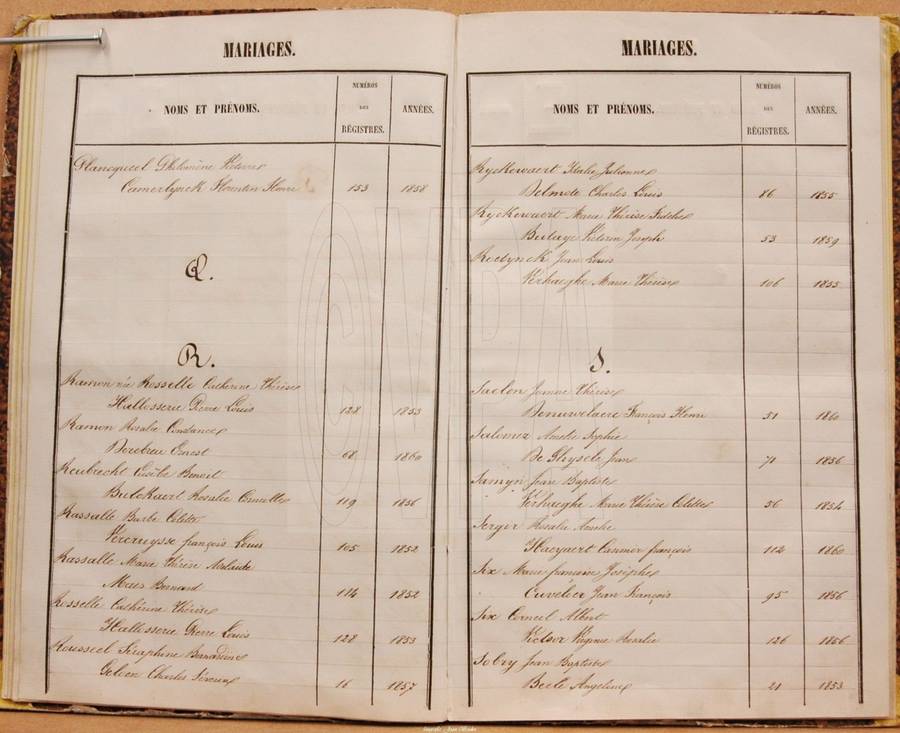 MARIAGES.
NOMS ET PRÉNOMS.
NUMÉROS
DES
RÉGISTRES.
ANNÉES.
Plancqueel Philomène Victoire
Camerlynck Florentin Henri 153 1858
Q.
R.
Ramon née Rosselle Catherine Thérèse
Hallosserie Pierre Louis 128 1853
Ramon Rosalie Constance
Dorebreu Ernest 68 1860
Reubrecht Eusèbe Benoit
Bulckaert Rosalie 119 1856
Rassalle Barbe Colette
Vercruysse françois Louis 105 1852
Rassalle Marie Thérèse Adelaïde
Maes Bernard 114 1852
Rosselle Cathérine Thérèse
Hallosserie Pierre Louis 128 1853
Rousseel Séraphine Bernardine
Geloen Charles Séverin 16 1857
MARIAGES.
NOMS ET PRÉNOMS.
NUMÉROS
DES
RÉGISTRES.
ANNÉES.
Ryckewaert Italie Julienne
Delmote Charles Louis 86 1855
Ryckewaert Marie Thérèse Fidèle
Butaye Victorin Joseph 53 1859
Roetynck Jean Louis
Verhaeghe Marie Thérèse 106 1855
S.
Saelen Jeanne Thérèse
Denuwelaere François Henri 51 1860
Salomez Amelie Sophie
De Ghysele Jean 71 1856
Samyn Jean Baptiste
Verhaeghe Marie Thérèse Colette 56 1854
Serger Rosalie Amelie
Haeyaert Casimir françois 112 1860
Six Marie françoise Josephe
Cuvelier Jean François 95 1856
Six Corneil Albert
Virginie Rosalie 126 1856
Sobry Jean Baptiste
Beele Angeline 21 1853
CVPA